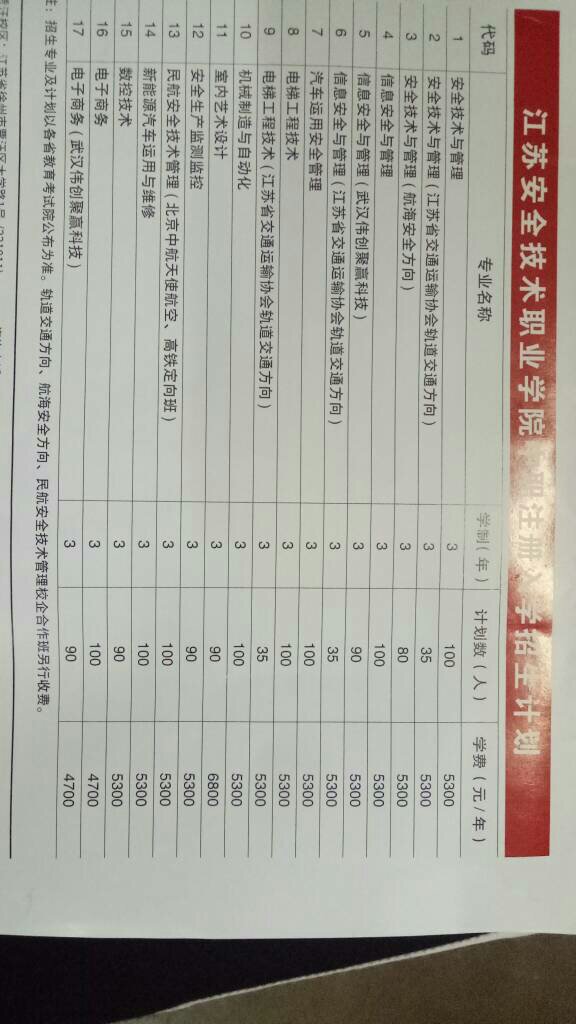 江苏安全技术职业学院 注册入学招生计划
代码 专业名称 学制(年) 计划数(人) 学费(元/年)
1 安全技术与管理 3 100 5300
2 安全技术与管理(江苏省交通运输协会轨道交通方向) 3 35 5300
3 安全技术与管理(航海安全方向) 3 80 5300
4 信息安全与管理 3 100 5300
5 信息安全与管理(武汉伟创聚赢科技) 3 90 5300
6 信息安全与管理(江苏省交通运输协会轨道交通方向) 3 35 5300
7 汽车运用安全管理 3 100 5300
8 电梯工程技术 3 100 5300
9 电梯工程技术(江苏省交通运输协会轨道交通方向) 3 35 5300
10 机械制造与自动化 3 100 5300
11 室内艺术设计 3 90 6800
12 安全生产监测监控 3 90 5300
13 民航安全技术管理(北京中航天使航空、高铁定向班) 3 100 5300
14 新能源汽车运用与维修 3 100 5300
15 数控技术 3 90 5300
16 电子商务 3 100 4700
17 电子商务(武汉伟创聚赢科技) 3 90 4700
注：招生专业及计划以各省教育考试院公布为准。轨道交通方向、航海安全方向、民航安全技术管理校企合作班另行收费。
贾汪校区：江苏省徐州市贾汪区大学路1号 (221011)